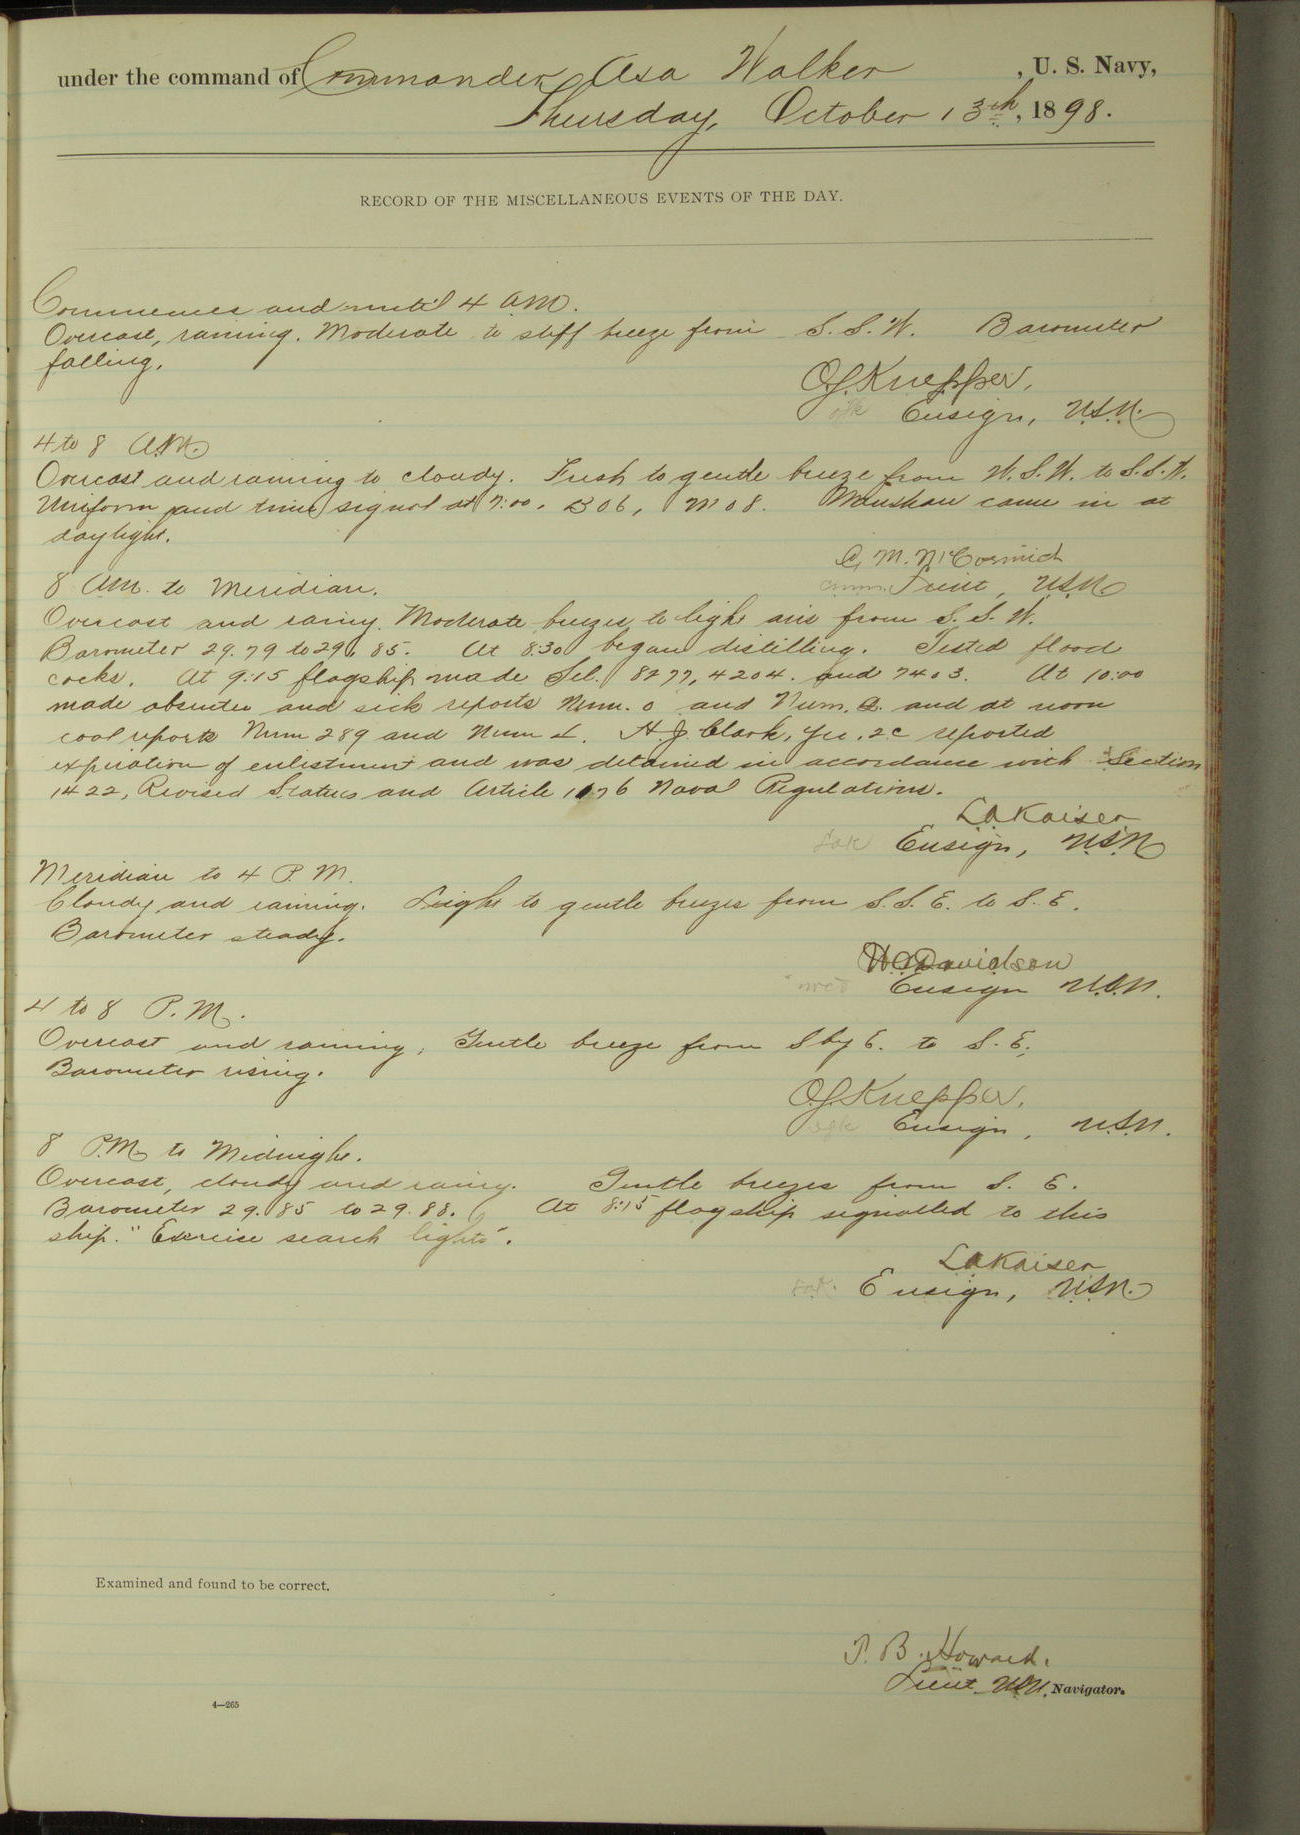 under the command of Commander Asa Walker, U. S. Navy,
Thursday, October 13th, 1898.
RECORD OF THE MISCELLANEOUS EVENTS OF THE DAY.
Commences and until 4 A.M.
Overcast, raining. Moderate to stiff breeze from S. S. W. Barometer
falling.
O.J. Knepper.
Ensign, U.S.N.
4 to 8 A.M.
Overcast and raining to cloudy. Fresh to gentle breeze from W. S. W. to S. S. W.
Uniform and time signal at 7:00. B06, M08. Manshan came in at
daylight.
C. M. McCormick
Lieut, U.S.N.
8 A.M. to Meridian.
Overcast and rainy. Moderate breezes to light airs from S. S. W.
Barometer 29.79 to 29.85. At 8:30 began distilling. Tested flood
cocks. At 9:15 flagship made Sel. 8277, 4204. and 7403. At 10:00
made absentee and sick reports Num. 0 and Num. and at noon
coal reports Num 289 and Num L. H. J. Clark, Yeo, 2c reported
expiration of enlistment and was detained in accordance with Section
1422, Revised Status and Article 1076 Naval Regulations.
L A Kaiser
Lak Ensign, U.S.N
Meridian to 4 P. M.
Cloudy and raining. Light to gentle breezes from S. S. E. to S. E.
Barometer steady.
W C Davidson
Ensign U.S.N.
4 to 8 P. M.
Overcast and raining, Gentle breeze from S by E. to S. E.
Barometer rising.
O.J. Knepper.
Ensign, U.S.N.
8 P.M. to Midnight.
Overcast, cloudy and rainy. Gentle breezes from S. E.
Barometer 29.85 to 29.88. At 8:15 flagship signalled to this
ship. "Exercise search lights".
L A Kaiser
Ensign, U.S.N.
Examined and found to be correct.
T. B. Howard.
Lieut. U.S.N. Navigator.
4—265